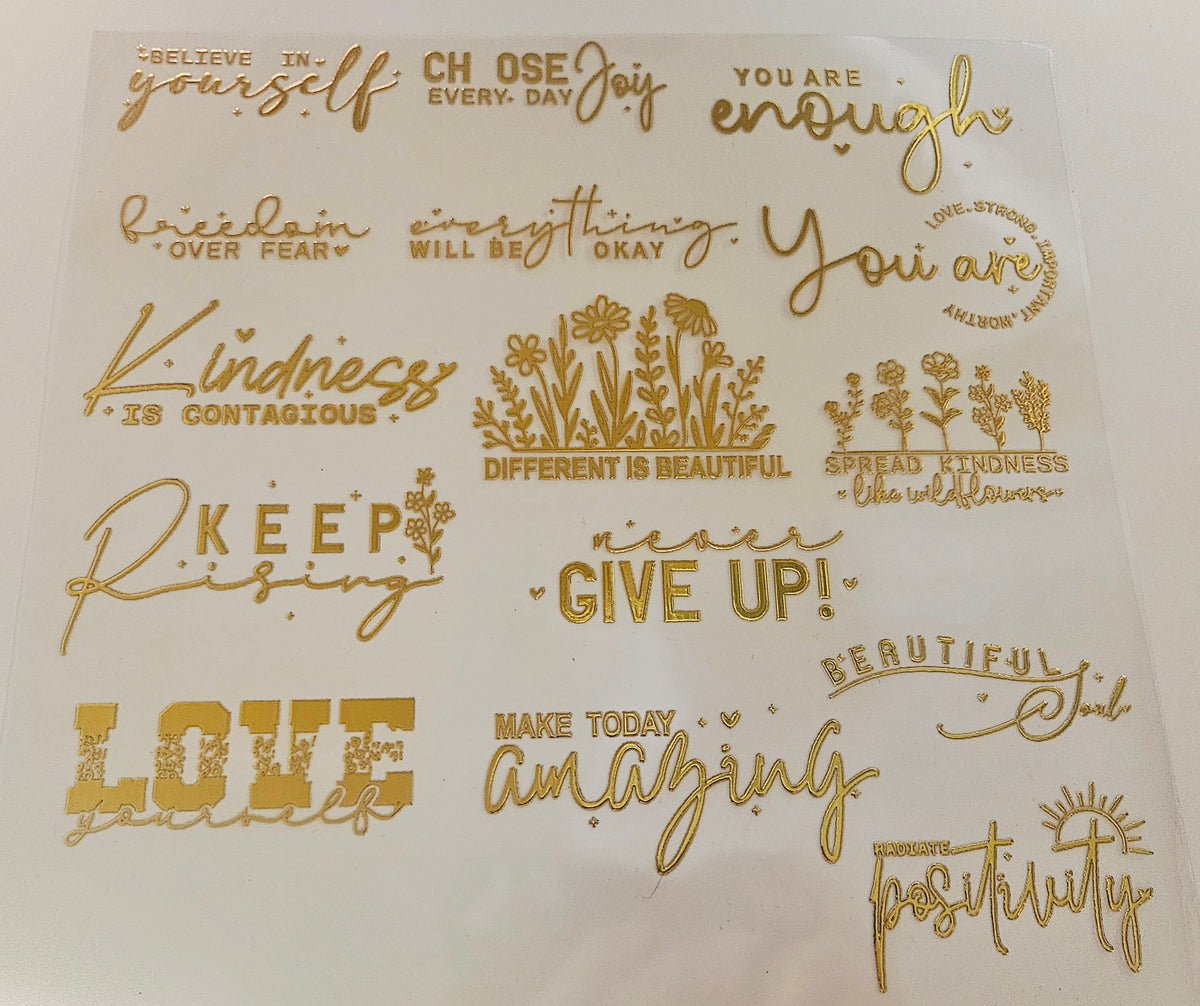 BELIEVE IN
yourself
CHOOSE
EVERY DAY Joy
YOU ARE
enough
freedom
OVER FEAR
everything
WILL BE OKAY
You are
LOVE, STRONG, IMPORTANT, WORTHY
Kindness
IS CONTAGIOUS
DIFFERENT IS BEAUTIFUL
SPREAD KINDNESS
like wildflowers
KEEP
Rising
never
GIVE UP!
BEAUTIFUL
Soul
LOVE
yourself
MAKE TODAY
amazing
RADIATE
positivity